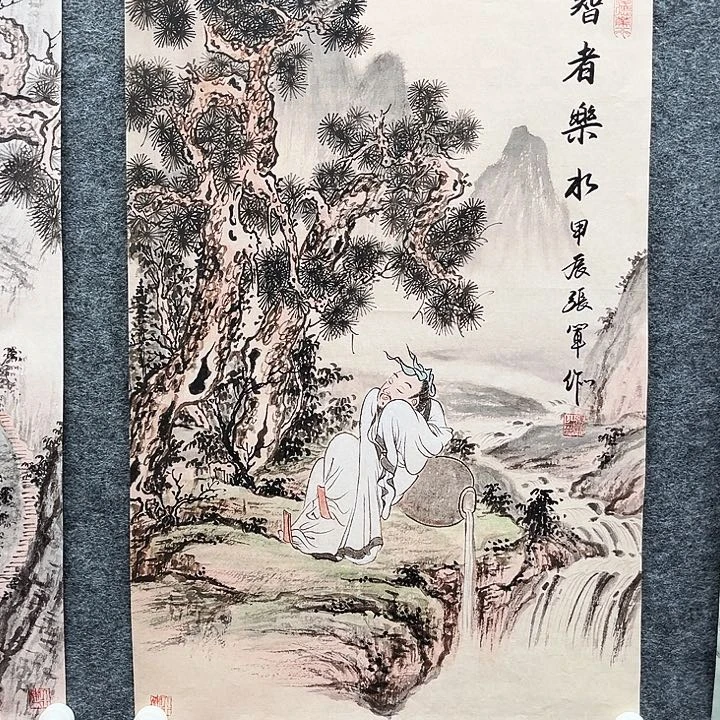 智者樂水
甲辰張軍作